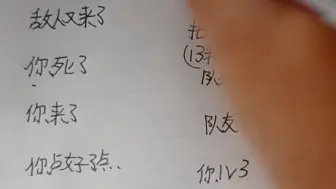 敌人又来了
你死了
你来了
你点好了点..
(13
队
队友
你1V3